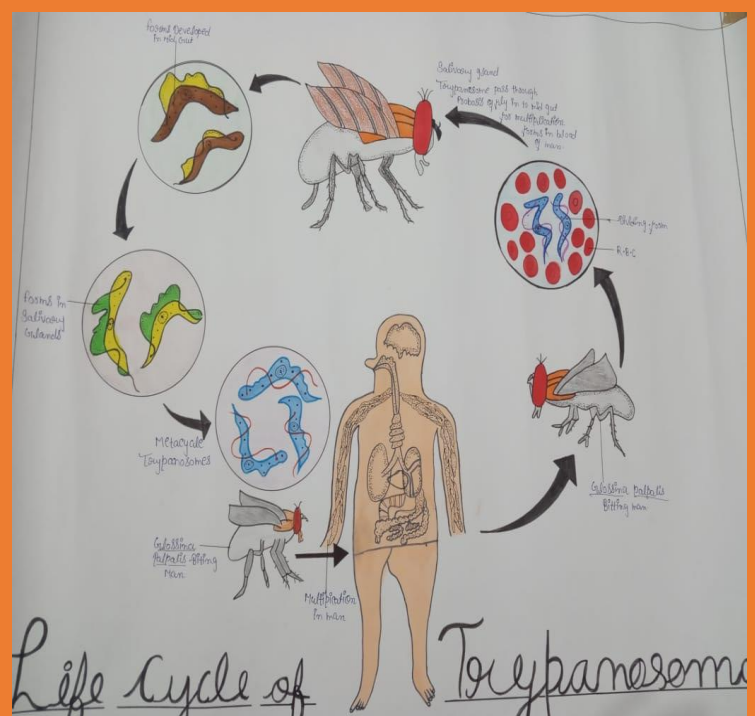 Forms Developed
In Mid Gut
Salivary gland
Trypanosome pass through
Proboscis of fly In to mid gut
for multiplication
forms in blood
of man
R.B.C
Forms In
Salivary
Glands
Metacycle
Trypanosomes
Glossina palpalis
Bitting man
Glossina
Palpalis Biting
Man
Multiplication
In man
Life Cycle of Trypanosoma